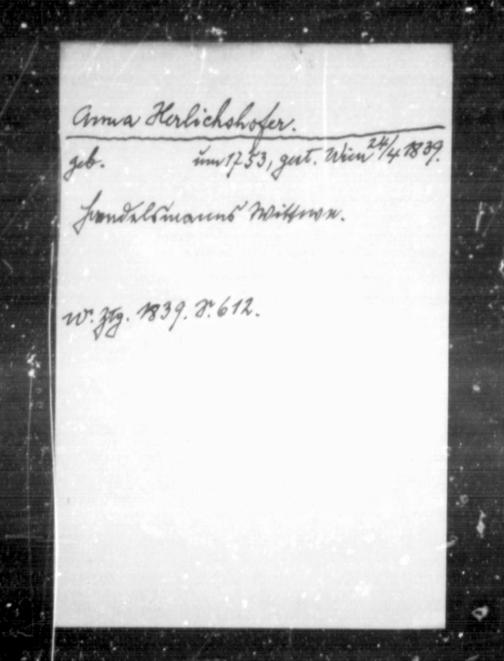 Anna Herlichshofer.
geb. um 1753, gest. Wien 24/4 1839.
Handelsmanns Wittwe.
W. Ztg. 1839. S. 612.